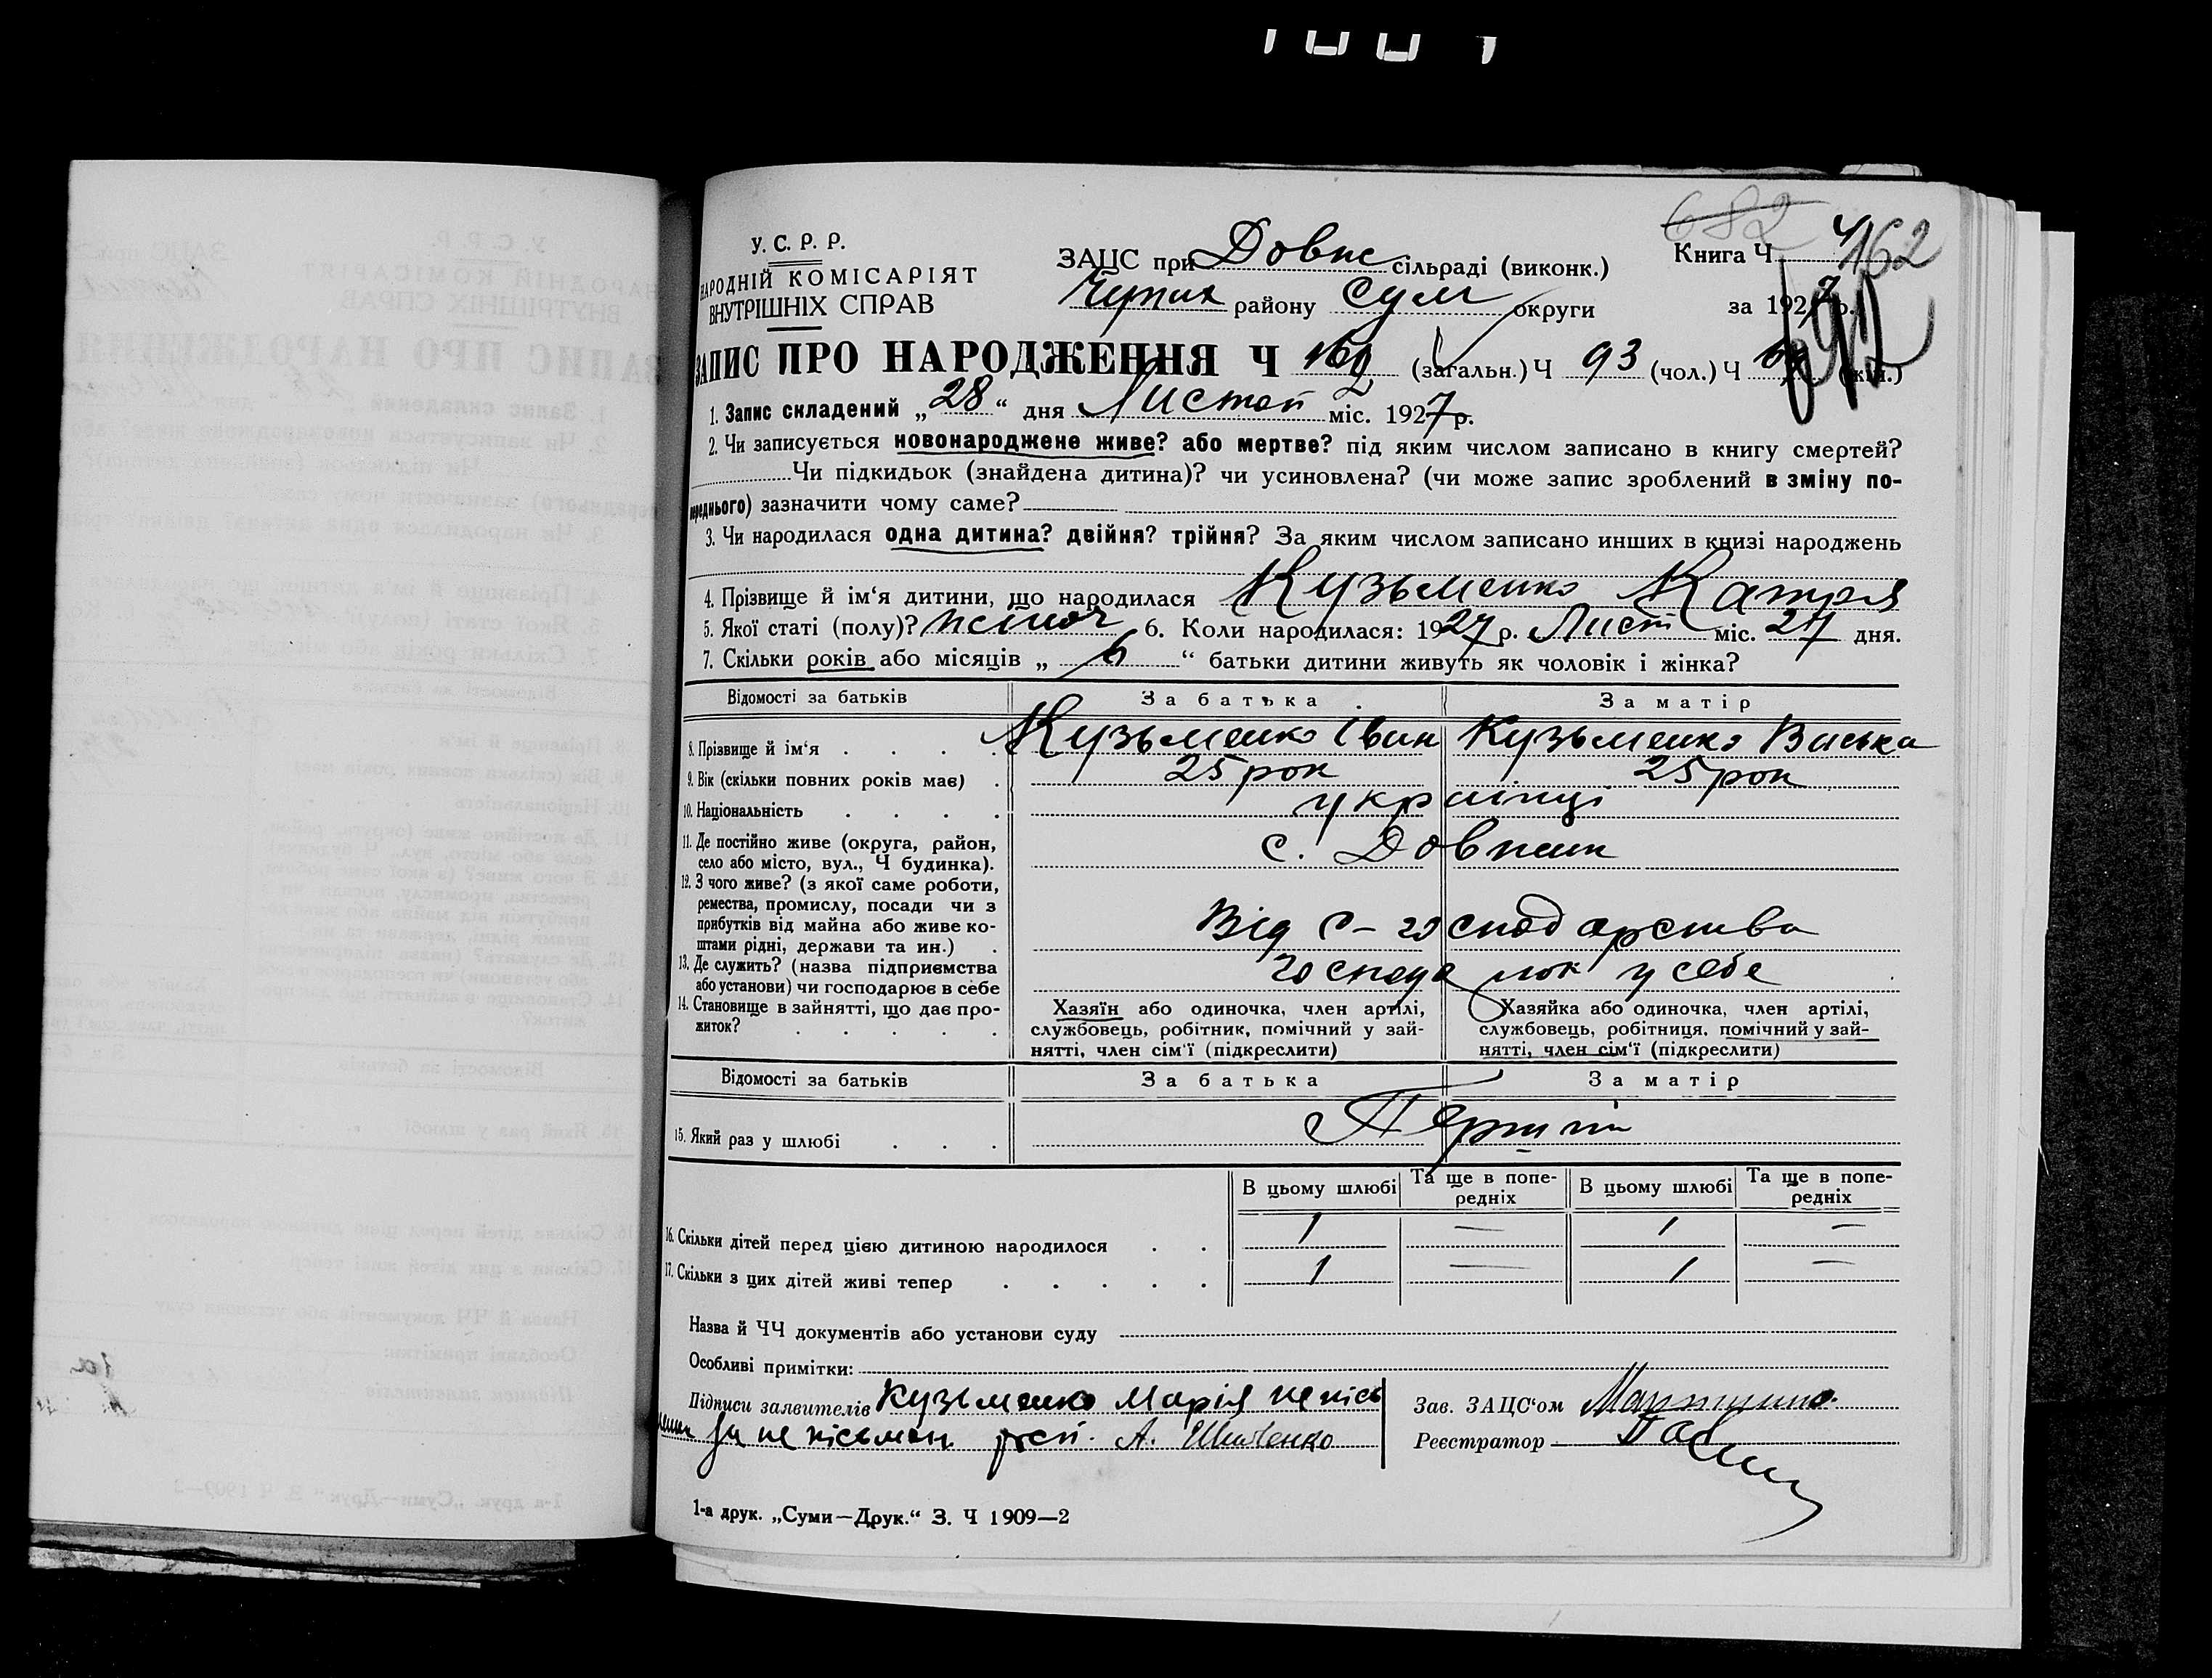 У. С. Р. Р.
НАРОДНІЙ КОМІСАРІЯТ
ВНУТРІШНІХ СПРАВ
ЗАЦС при Довж сільраді (виконк.)
Чупах району Сум округи
682
Книга Ч. 162
за 1927 р.
ЗАПИС ПРО НАРОДЖЕННЯ Ч 162 (загальн.) Ч 93 (чол.) Ч (жін.)
1. Запис складений „28“ дня Листоп міс. 1927 р.
2. Чи записується новонароджене живе? або мертве? під яким числом записано в книгу смертей?
Чи підкидьок (знайдена дитина)? чи усиновлена? (чи може запис зроблений в зміну по-
переднього) зазначити чому саме?
3. Чи народилася одна дитина? двійня? трійня? За яким числом записано инших в книзі народжень
4. Прізвище й ім‘я дитини, що народилася Кузьменко Катря
5. Якої статі (полу)? жіноч 6. Коли народилася: 1927 р. Лист міс. 27 дня.
7. Скільки років або місяців „ 6 “ батьки дитини живуть як чоловік і жінка?
Відомості за батьків За батька За матір
8. Прізвище й ім‘я Кузьменко Іван Кузьменко Васька
9. Вік (скільки повних років має) 25 рок 25 рок
10. Національність українці
11. Де постійно живе (округа, район,
село або місто, вул., Ч будинка). с. Довжик
12. З чого живе? (з якої саме роботи,
ремества, промислу, посади чи з
прибутків від майна або живе ко-
штами рідні, держави та ин.) Від С-господарства
13. Де служить? (назва підприємства
або установи) чи господарює в себе у себе
14. Становище в зайнятті, що дає про-
житок?
Хазяїн або одиночка, член артілі,
службовець, робітник, помічний у зай-
нятті, член сім‘ї (підкреслити)
Хазяйка або одиночка, член артілі,
службовець, робітниця, помічний у зай-
нятті, член сім‘ї (підкреслити)
Відомості за батьків За батька За матір
15. Який раз у шлюбі Перший
В цьому шлюбі Та ще в попе-редніх В цьому шлюбі Та ще в попе-редніх
16. Скільки дітей перед цією дитиною народилося 1 — 1 —
17. Скільки з цих дітей живі тепер 1 — 1 —
Назва й ЧЧ документів або установи суду
Особливі примітки:
Підписи заявителів Кузьменко Марія непісь
за не пісьмен росп. А.
Зав. ЗАЦС‘ом
Реєстратор
1-а друк. „Суми—Друк.“ З. Ч 1909—2